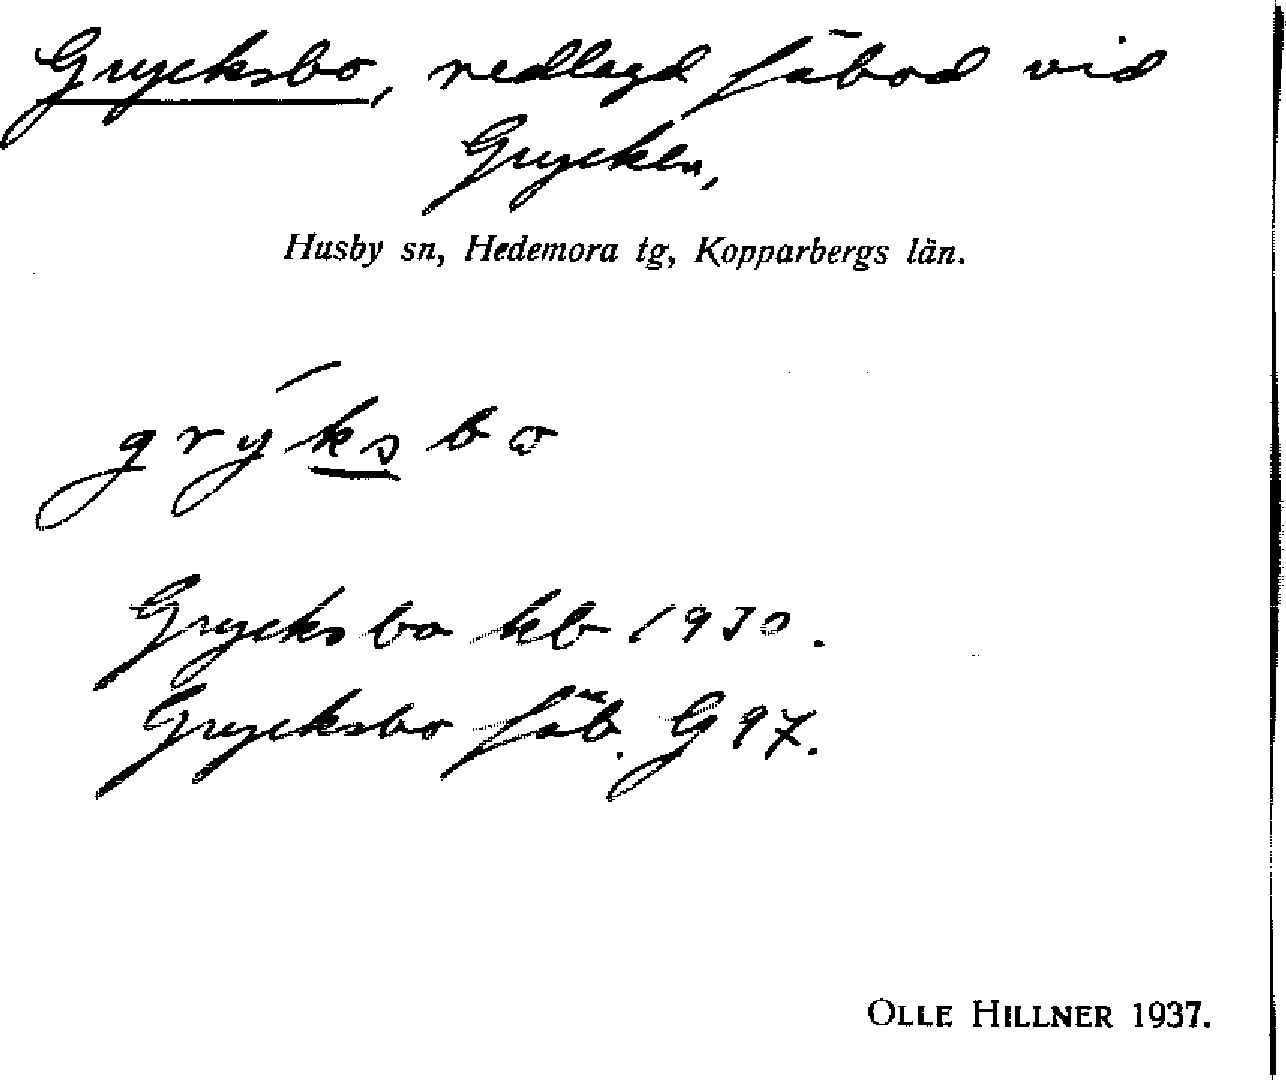 Grycksbo, nedlagd fäbod vid
Grycken,
Husby sn, Hedemora tg, Kopparbergs län.
grýksbo
Grycksbo kb 1930.
Grycksbo fäb. G 97.
OLLE HILLNER 1937.